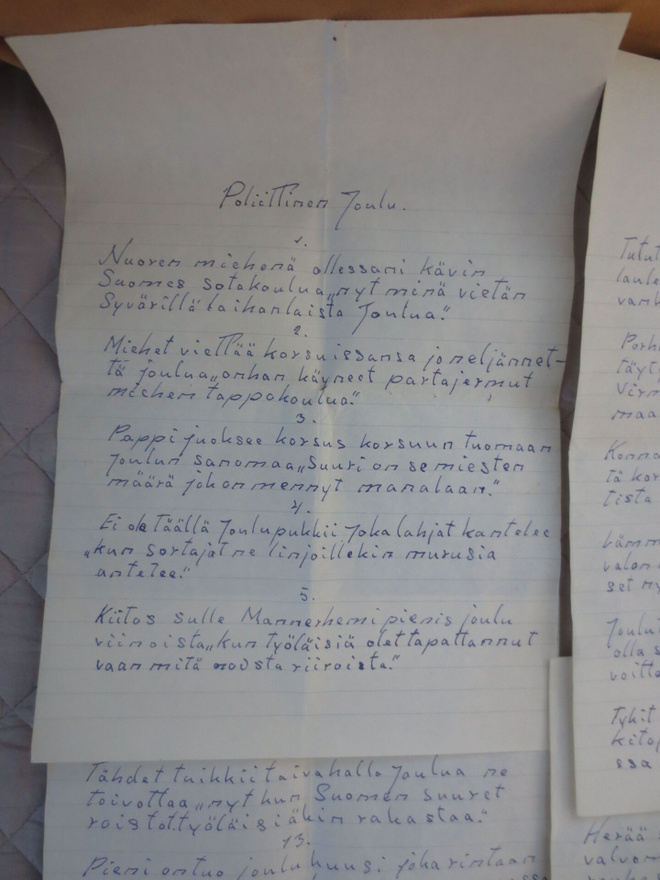 Poliittinen Joulu.
1.
Nuoren miehenä ollessani kävin
Suomes sotakoulua„nyt minä vietän
Syvärillä laihanlaista Joulua."
2.
Miehet viettää korsuissansa jo neljännet-
tä joulua„onhan käyneet partajermut
miehen tappokoulua."
3.
Pappi juoksee korsus korsuun tuomaan
Joulun sanomaa„Suuri on se miesten
määrä jok on mennyt manalaan."
4.
Ei ole täällä Joulupukkii joka lahjat kantelee
„kun sortajat ne linjoillekin murusia
antelee."
5.
Kiitos sulle Mannerhemi pienis joulu
viinoista„kun työläisiä olet tapattannut
vaan mitä
Tähdet tuikkii taivahalla Joulua ne
toivottaa„nyt kun Suomen suuret
roistot.työläisiäkin rakastaa."
13.
Pieni on tuo joulukuusi joka rintaan
Tutut
laule
vanh
Porh
täyt
Virn
maa
Konna
tä kor
tista
Lämm
valon
set ny
Joulu
olla s
voitto
Tykit
kitaj
ssa
Herää
valvom